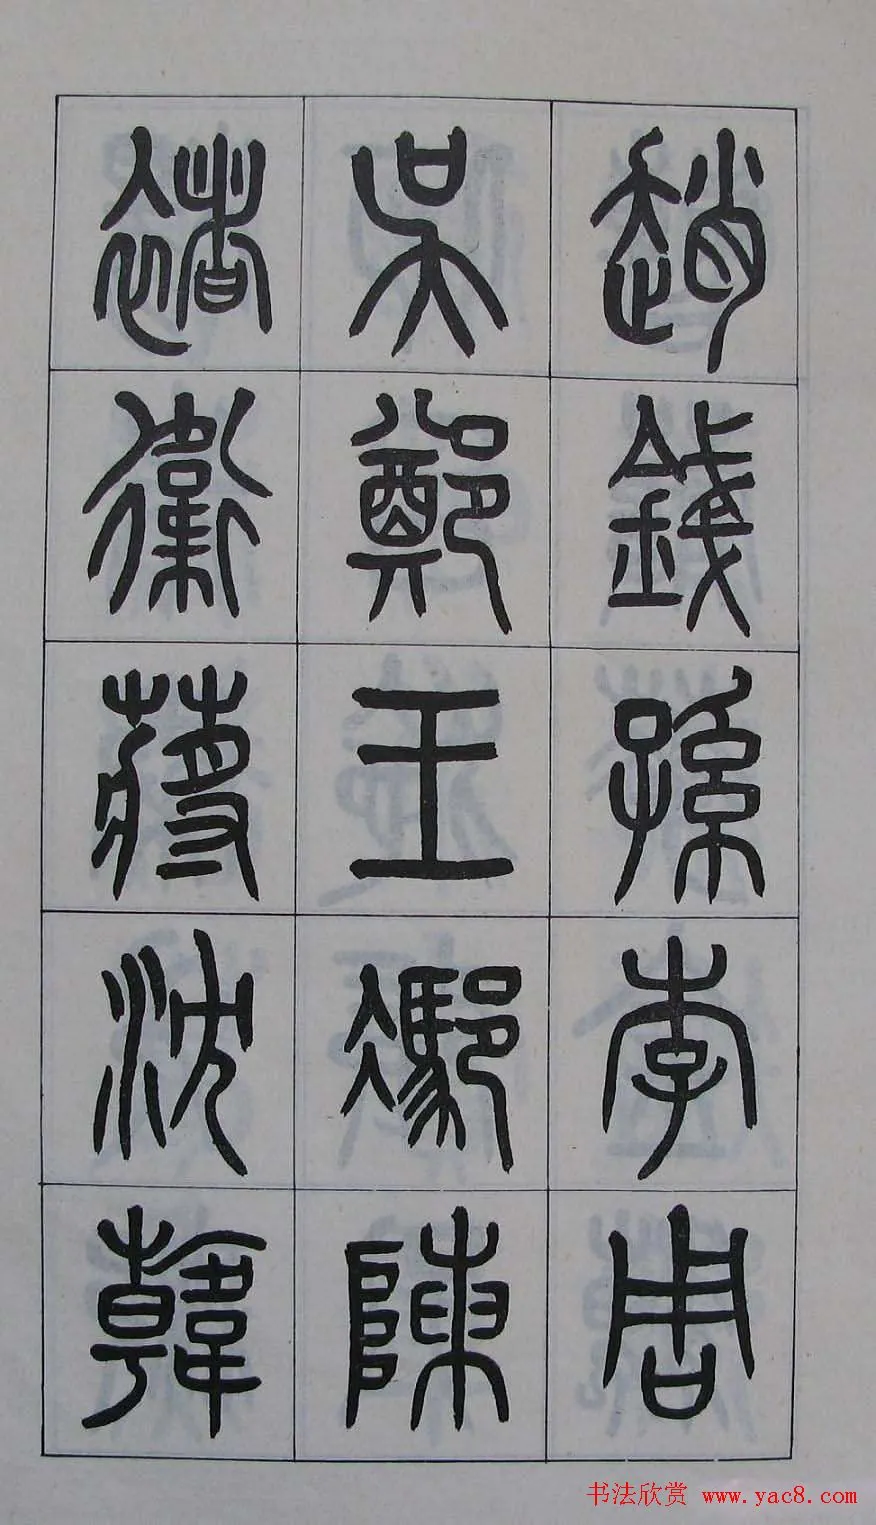 趙錢孫李周
吳鄭王馮陳
褚衛蔣沈韓
书法欣赏 www.yac8.com